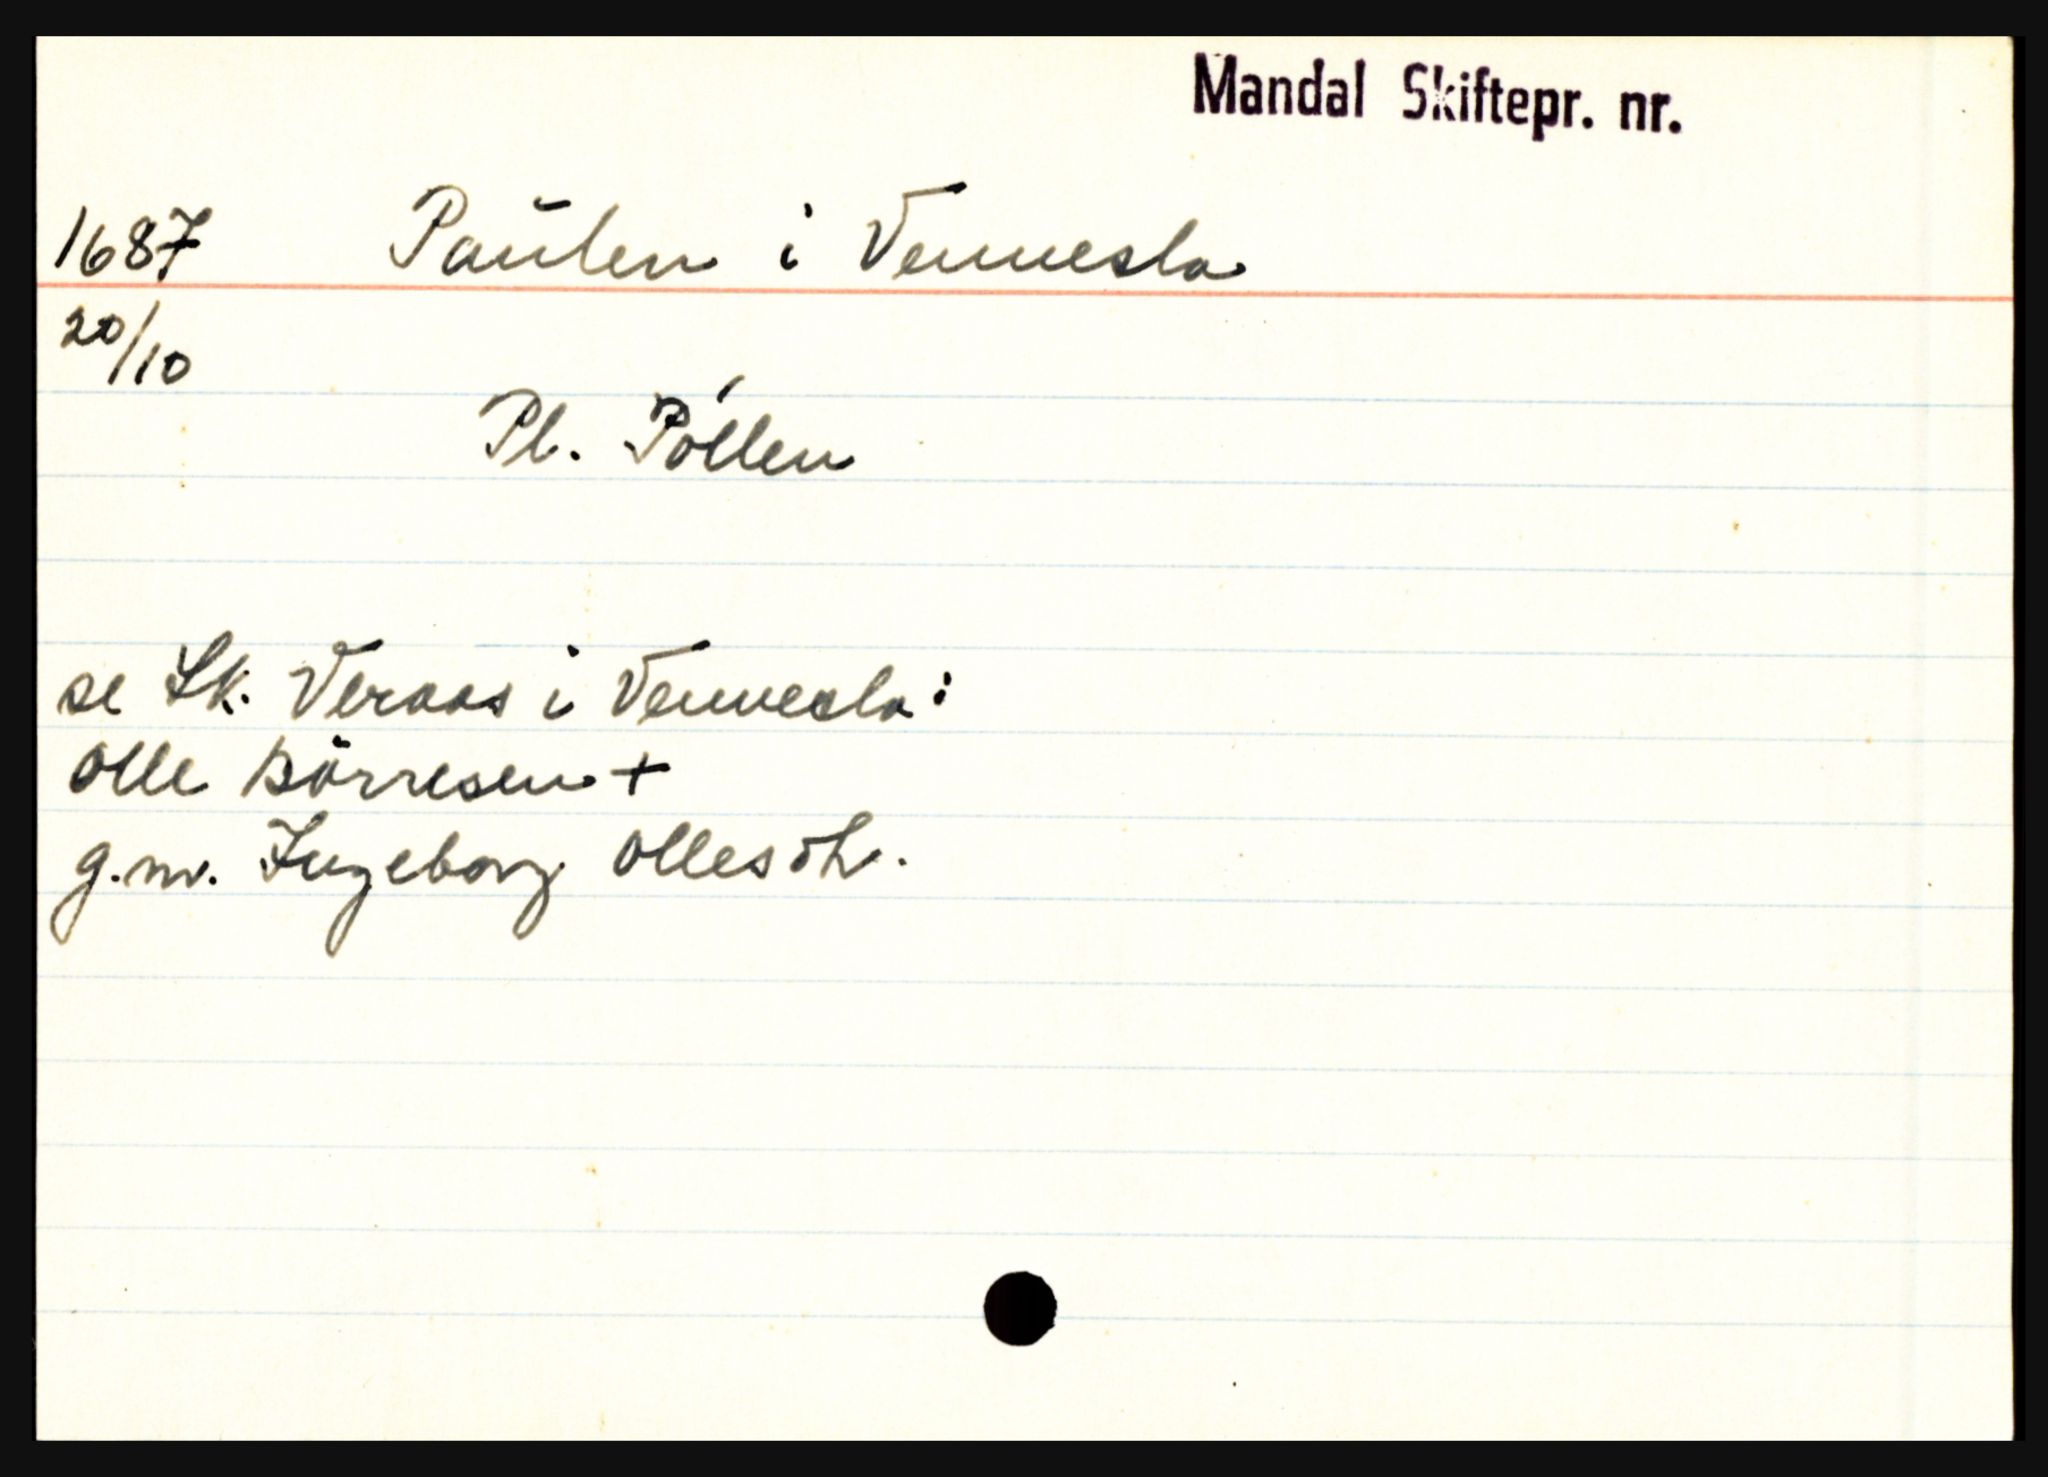 Mandal Skiftepr. nr.
1687 Paulen i Vennesla
20/10
Pl. Póllen
se Sk. Veraas i Vennesla:
Olle Börresen +
g.m. Ingeborg Ollesdt.